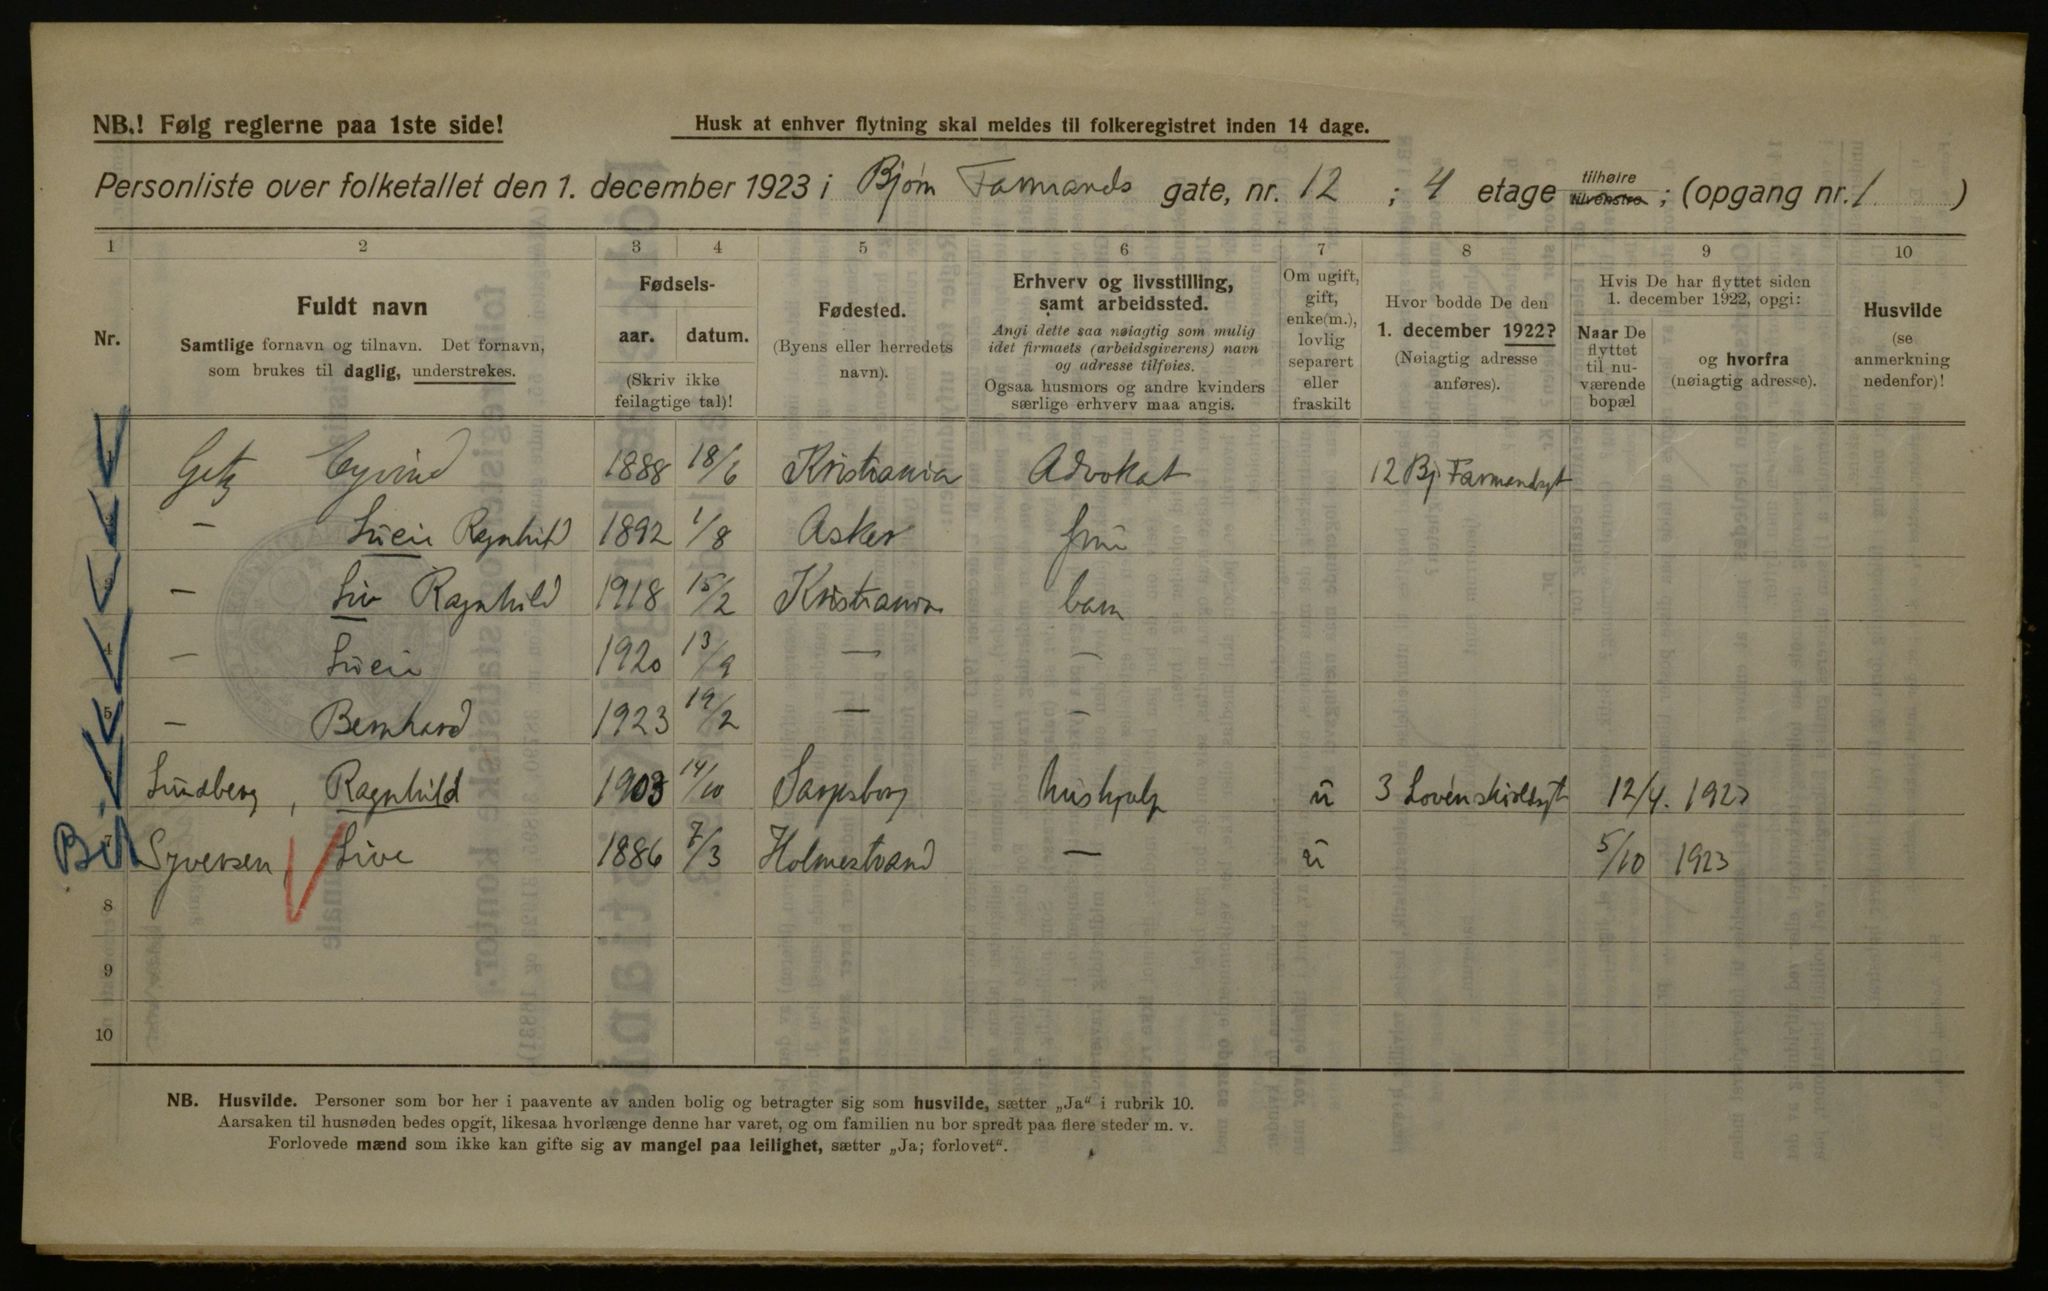 NB.! Følg reglerne paa 1ste side!
Husk at enhver flytning skal meldes til folkeregistret inden 14 dage.
Personliste over folketallet den 1. december 1923 i Bjørn Farmands gate, nr. 12 ; 4 etage tilhøire tilvenstre ; (opgang nr. 1 )
1 2 3 4 5 6 7 8 9 10
Nr.
Fuldt navn
Samtlige fornavn og tilnavn. Det fornavn,
som brukes til daglig, understrekes.
Fødsels-
aar. datum.
(Skriv ikke
feilagtige tal)!
Fødested.
(Byens eller herredets
navn).
Erhverv og livsstilling,
samt arbeidssted.
Angi dette saa nøiagtig som mulig
idet firmaets (arbeidsgiverens) navn
og adresse tilføies.
Ogsaa husmors og andre kvinders
særlige erhverv maa angis.
Om ugift,
gift,
enke(m.),
lovlig
separert
eller
fraskilt
Hvor bodde De den
1. december 1922?
(Nøiagtig adresse
anføres).
Hvis De har flyttet siden
1. december 1922, opgi:
Naar De
flyttet
til nu-
værende
bopæl
og hvorfra
(nøiagtig adresse).
Husvilde
(se
anmerkning
nedenfor)!
Getz Eyvind 1888 18/6 Kristiania Advokat 12 Bj. Farmandsgt
2 — Lucie Ragnhild 1892 1/8 Asker frue
3 — Liv Ragnhild 1918 15/2 Kristiania barn
4 — Lucie 1920 13/9 — —
5 — Bernhard 1923 19/2 — —
Lundberg, Ragnhild 1903 14/10 Sarpsborg hushjælp u 3 Løvenskioldsgt 12/4. 1923
7 Syversen, Live 1886 7/3 Holmestrand — u 5/10 1923
8
9
10
NB. Husvilde. Personer som bor her i paavente av anden bolig og betragter sig som husvilde, sætter „Ja“ i rubrik 10.
Aarsaken til husnøden bedes opgit, likesaa hvorlænge denne har varet, og om familien nu bor spredt paa flere steder m. v.
Forlovede mænd som ikke kan gifte sig av mangel paa leilighet, sætter „Ja; forlovet“.